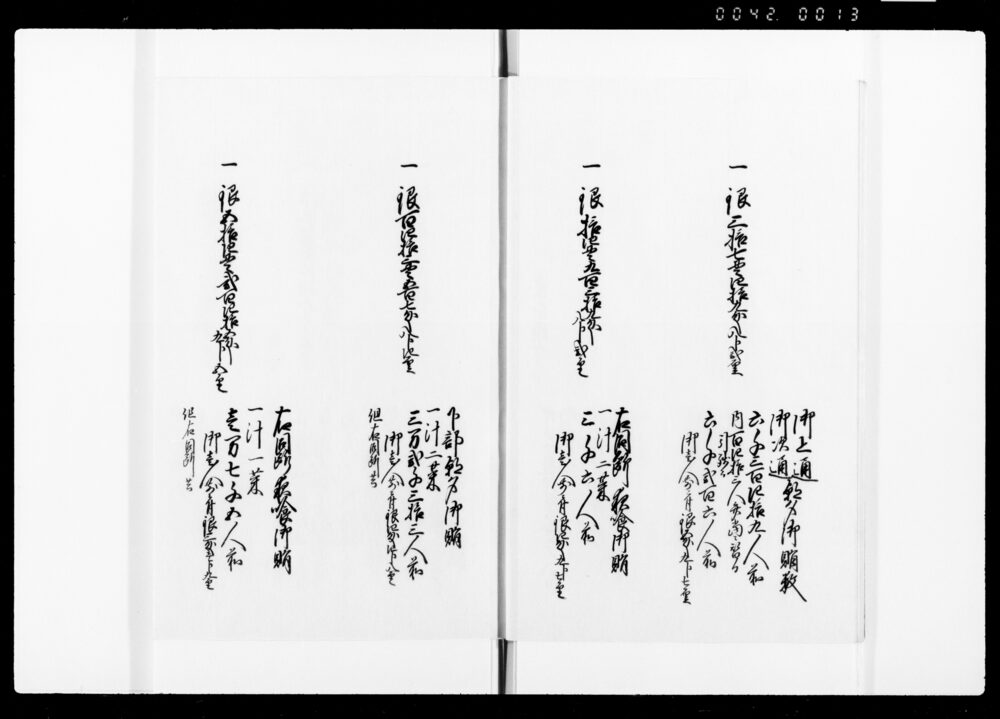 0042.0013
一 銀三拾七貫四拾匁八分弐厘
御上通
御次通 朝夕御賄数
六千三百四拾九人前
内百四拾三人
引残而
六千弐百六人前
御壱人分ニ付銀六匁九分七厘
一 銀拾四貫九百三拾匁
八分弐厘
右同断夜喰御賄
一汁二菜
三千六人前
御壱人分ニ付銀四匁九分七厘
一 銀百四拾三貫五百七匁八分四厘
下部朝夕御賄
一汁二菜
三万弐千三拾三人前
御壱人分ニ付銀四匁四分八厘
但右同断
一 銀五拾四貫弐百四拾匁
九分五厘
右同断夜喰御賄
一汁一菜
壱万七千五人前
御壱人分ニ付銀三匁壱分九厘
但右同断